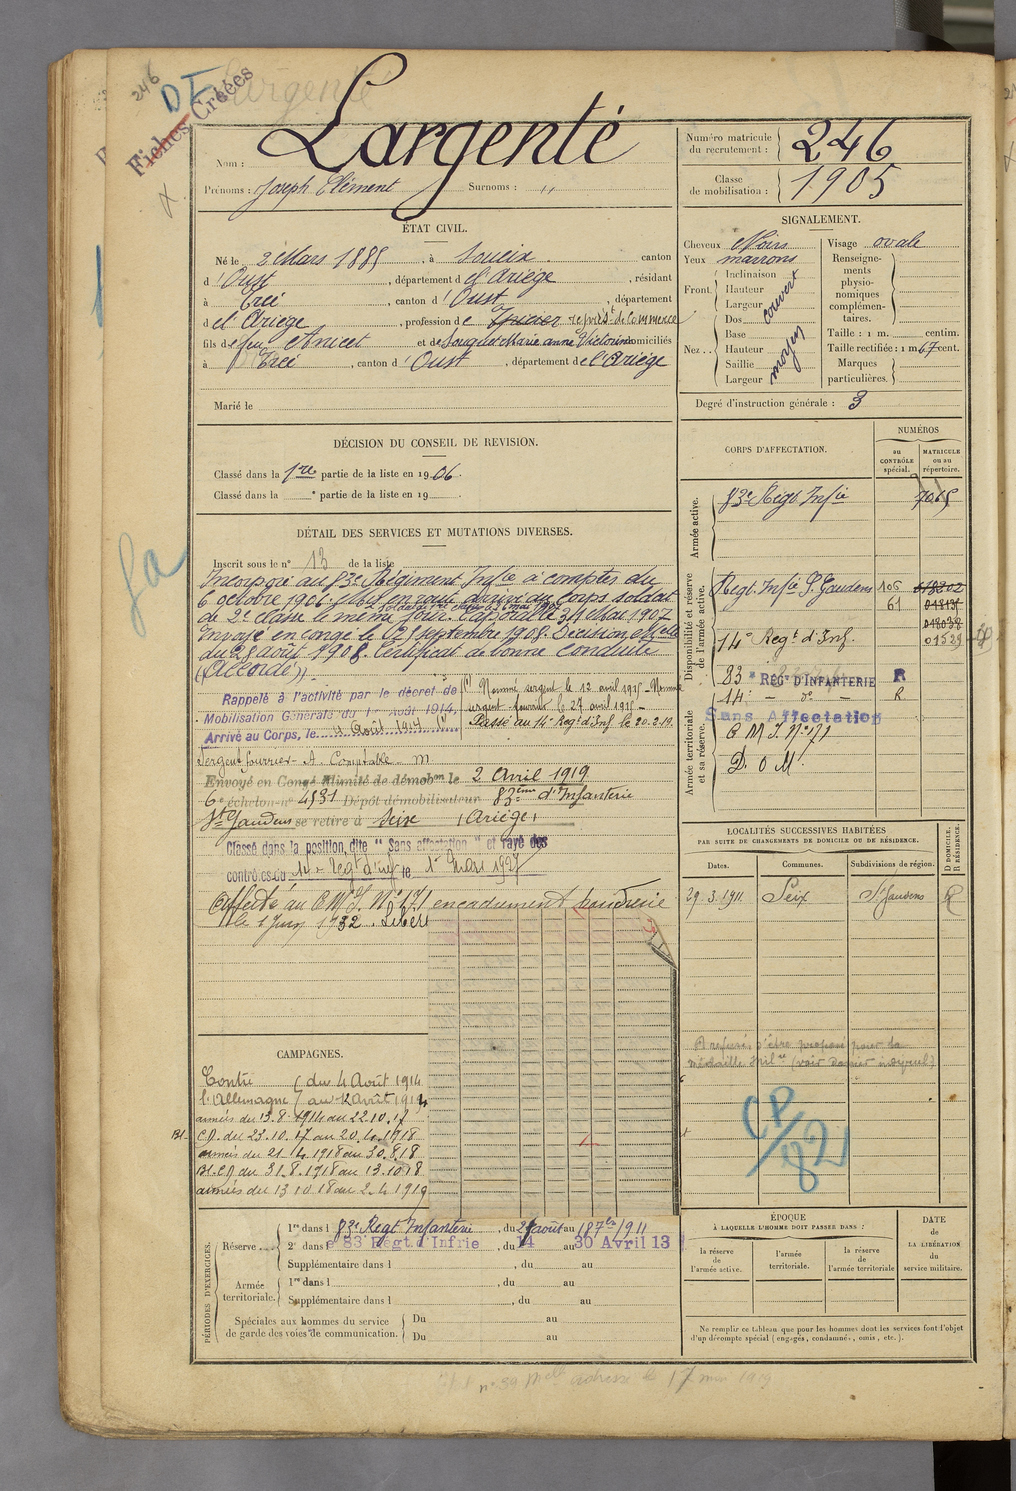 246
DF
Fiches Créées
Largenté
Nom :
Prénoms : Joseph Clément Surnoms : "
Numéro matricule du recrutement : 246
Classe de mobilisation : 1905
ÉTAT CIVIL.
Né le 2 Mars 1885, à Soueix canton
d'Oust, département de l'Ariège, résidant
à Ercé, canton d'Oust, département
de l'Ariège, profession de Epicier représt de commerce
fils de feu Anicet et de Souquet Marie anne Victorine domiciliés
à Ercé, canton d'Oust, département de l'Ariège
Marié le
SIGNALEMENT.
Cheveux Noirs
Yeux marrons
Front. Inclinaison
Hauteur
Largeur
couvert
Nez... Dos
Base
Hauteur
Saillie
Largeur
moyen
Visage ovale
Renseignements physionomiques complémentaires.
Taille : 1 m. centim.
Taille rectifiée : 1 m 67 cent.
Marques particulières.
Degré d'instruction générale : 3
DÉCISION DU CONSEIL DE REVISION.
Classé dans la 1re partie de la liste en 1906.
Classé dans la e partie de la liste en 19
DÉTAIL DES SERVICES ET MUTATIONS DIVERSES.
Inscrit sous le n° 13 de la liste
Incorporé au 83e Régiment Infie à compter du
6 octobre 1906. Mis en route arrivé au Corps soldat
de 2e classe le même jour. Caporal le 31 Mai 1907
Envoyé en congé le 25 septembre 1908. Décision Melle
du 28 août 1908. Certificat de bonne conduite
(Accordé).
Rappelé à l'activité par le décret de
Mobilisation Générale du 1er Août 1914,
Arrivé au Corps, le 4 Août 1914 (1)
(1) Nommé sergent le 12 avril 1915 - Nommé
sergent fourrier le 27 avril 1915 -
Passé au 14e Regt d'Inf. le 20.2.19.
Sergent fourrier - A. Comptable - m
Envoyé en Congé illimité de démobon le 2 Avril 1919
6e échelon n° 4931 Dépôt démobilisateur 83ème d'Infanterie
St Gaudens se retire à Seix (Ariège)
Classé dans la position dite "Sans affectation" et rayé des
contrôles du 14e Regt d'inf le 1er Mars 1927
Affecté au C.M.I. N° 171 encadrement poudrerie
le 1 Juin 1932. Libéré
CORPS D'AFFECTATION.
NUMÉROS
au contrôle spécial.
matricule ou au répertoire.
Armée active.
83e Régt Infie 7065
Disponibilité et réserve de l'armée active.
Regt Infie St Gaudens 106
61
14e Regt d'Inf. 01529
83e RÉGT D'INFANTERIE R
14e - do - R
Armée territoriale et sa réserve.
Sans Affectation
C M I N° 171
D. O M.
LOCALITÉS SUCCESSIVES HABITÉES
PAR SUITE DE CHANGEMENTS DE DOMICILE OU DE RÉSIDENCE.
Dates. Communes. Subdivisions de région. D DOMICILE. R RÉSIDENCE.
29.3.1911 Seix St Gaudens R
A refusé d'être proposé pour la
Médaille Milre (voir dossier individuel)
CP/82
CAMPAGNES.
Contre (du 4 Août 1914
l'Allemagne (au 12 Août 1914
armées du 13.8.1914 au 22.10.17
Bl. C.D. du 23.10.17 au 20.4.1918
armées du 21.4.1918 au 30.8.18
Bl. C.D du 31.8.1918 au 13.10.18
armées du 13 10 18 au 2.4.1919
PÉRIODES D'EXERCICES.
Réserve.... 1re dans l 83e Régt Infanterie, du 24 août au 18 7bre 1911
2e dans le 83 Régt. d'Infrie, du 14 au 30 Avril 13
Supplémentaire dans l , du au
Armée territoriale. 1re dans l , du au
Supplémentaire dans l , du au
Spéciales aux hommes du service de garde des voies de communication. Du au
Du au
ÉPOQUE
À LAQUELLE L'HOMME DOIT PASSER DANS :
la réserve de l'armée active.
l'armée territoriale.
la réserve de l'armée territoriale
DATE DE LA LIBÉRATION du service militaire.
Ne remplir ce tableau que pour les hommes dont les services font l'objet
d'un décompte spécial (engagés, condamnés, omis, etc.).
n° 39 Melle adresse le 17 mai 1919